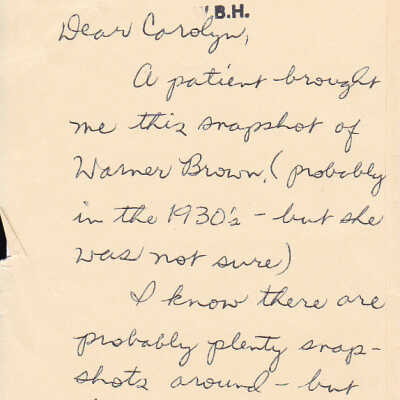 .B.H.
Dear Carolyn,
A patient brought
me this snapshot of
Warner Brown, (probably
in the 1930's - but she
was not sure)
I know there are
probably plenty snap-
shots around - but